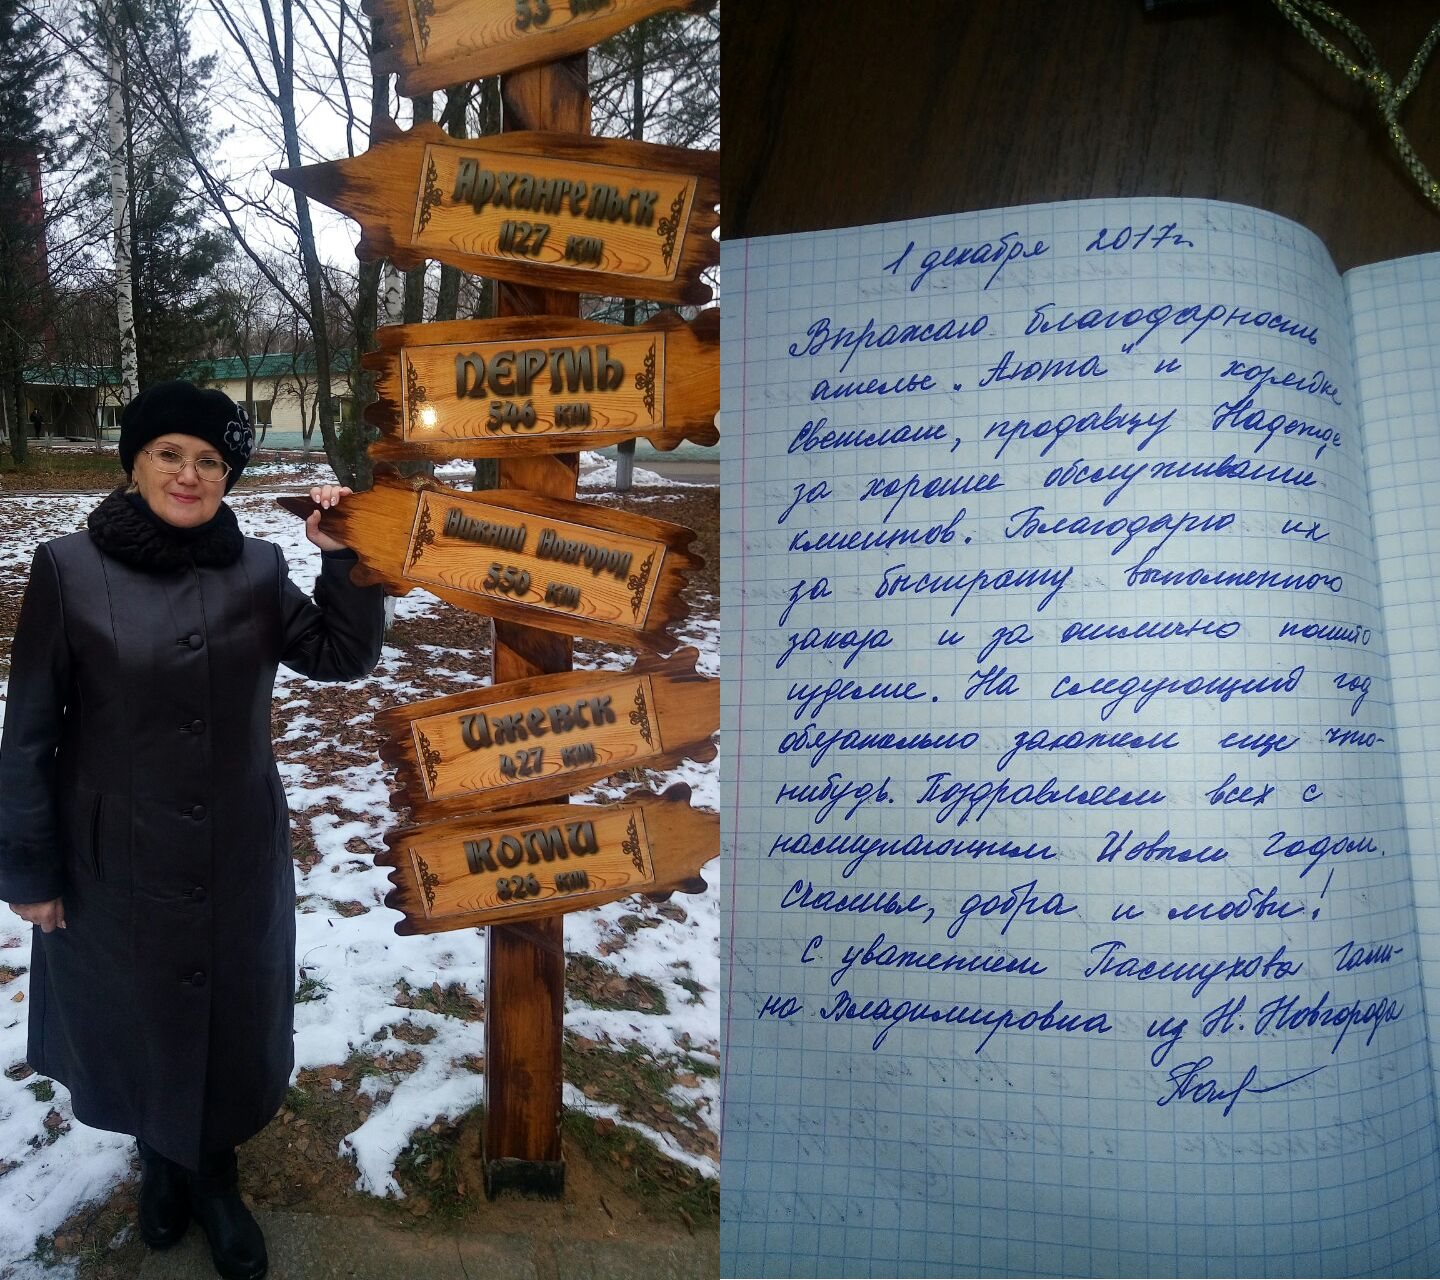 53 км
Архангельск
1127 км
Пермь
546 км
Нижний Новгород
550 км
Ижевск
427 км
Коми
826 км
1 декабря 2017г.
Выражаю благодарность
ателье „Аюта" и хозяйке
Светлане, продавцу Надежде
за хорошее обслуживание
клиентов. Благодарю их
за быстроту выполненного
заказа и за отлично пошито
изделие. На следующий год
обязательно закажем еще что-
нибудь. Поздравляем всех с
наступающим Новым Годом.
Счастья, добра и любви!
С уважением Пастухова Гали-
на Владимировна из Н. Новгорода